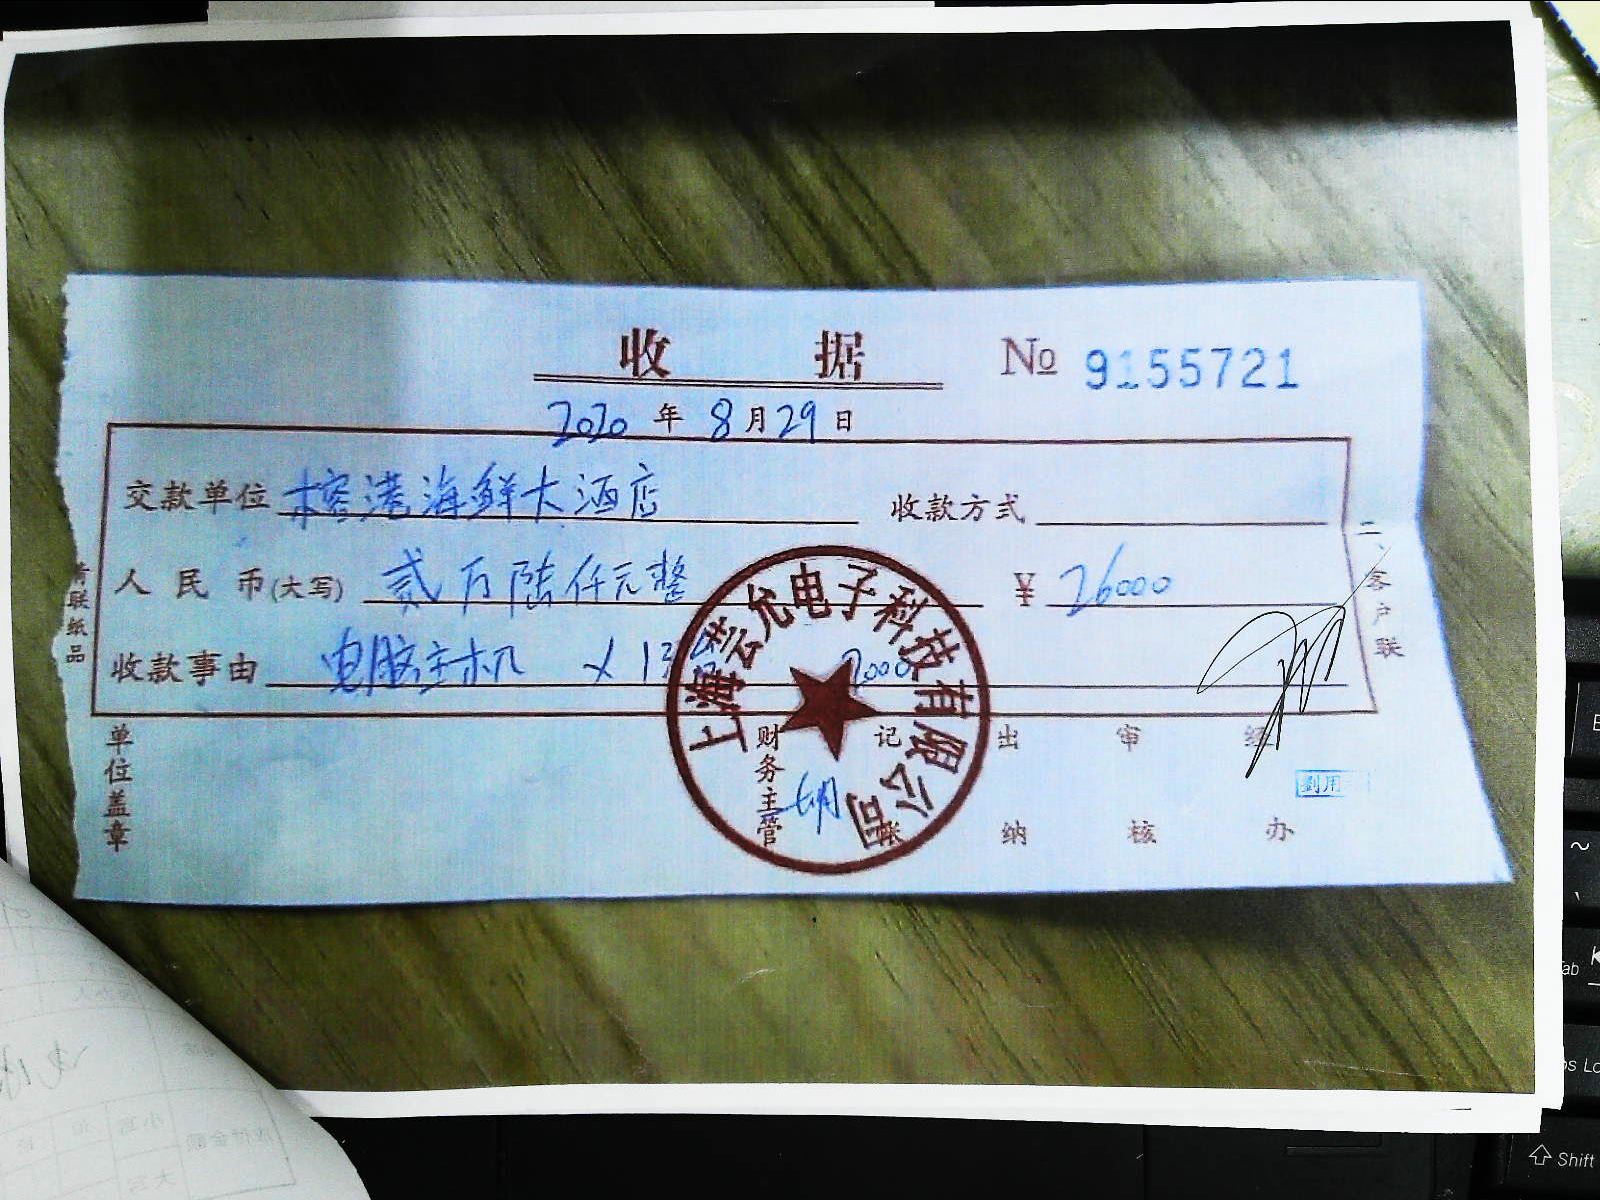 收 据 № 9155721
2020 年 8 月 29 日
交款单位 榕港海鲜大酒店 收款方式
人民币(大写) 贰万陆仟元整 ¥ 26000
收款事由 电脑主机 × 13 2000
上海芸允电子科技有限公司
单位盖章 财务主管 胡 记 出纳 审核 经办
二、客户联
青联纸品
Shift